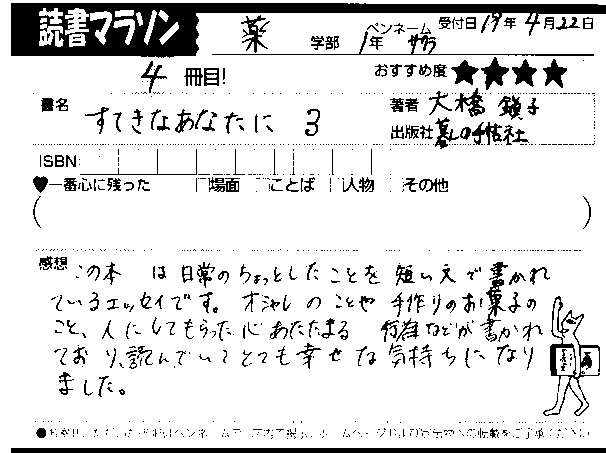 読書マラソン 薬 学部 1年 ペンネーム サクラ 受付日 19年4月22日
4 冊目! おすすめ度 ★★★★
書名 すてきなあなたに 3 著者 大橋 鎭子
出版社 暮しの手帖社
ISBN
♥一番心に残った □場面 □ことば □人物 □その他
( )
感想 この本 は日常のちょっとしたことを 短い文で書かれ
ているエッセイです。オシャレのことや 手作りのお菓子の
こと、人にしてもらった心あたたまる 行為などが書かれ
ており、読んでいてとても幸せな気持ちになり
ました。